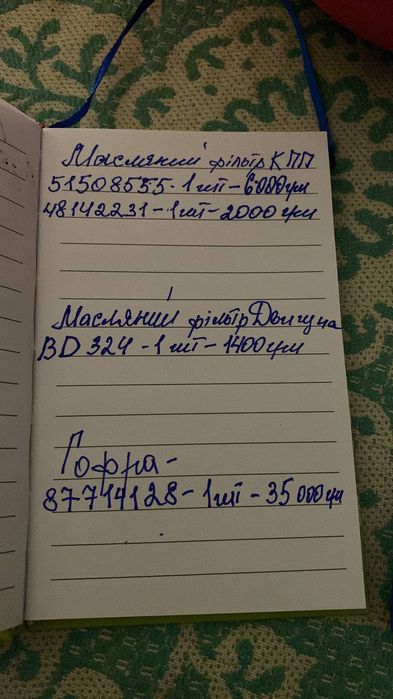 Масляний фільтр КПП
51508555 - 1 шт - 6000грн
48142231 - 1шт - 2000 грн
Масляний фільтр Двигуна
BD 324 - 1 шт - 1400грн
Гофра -
87714128 - 1шт - 35 000грн